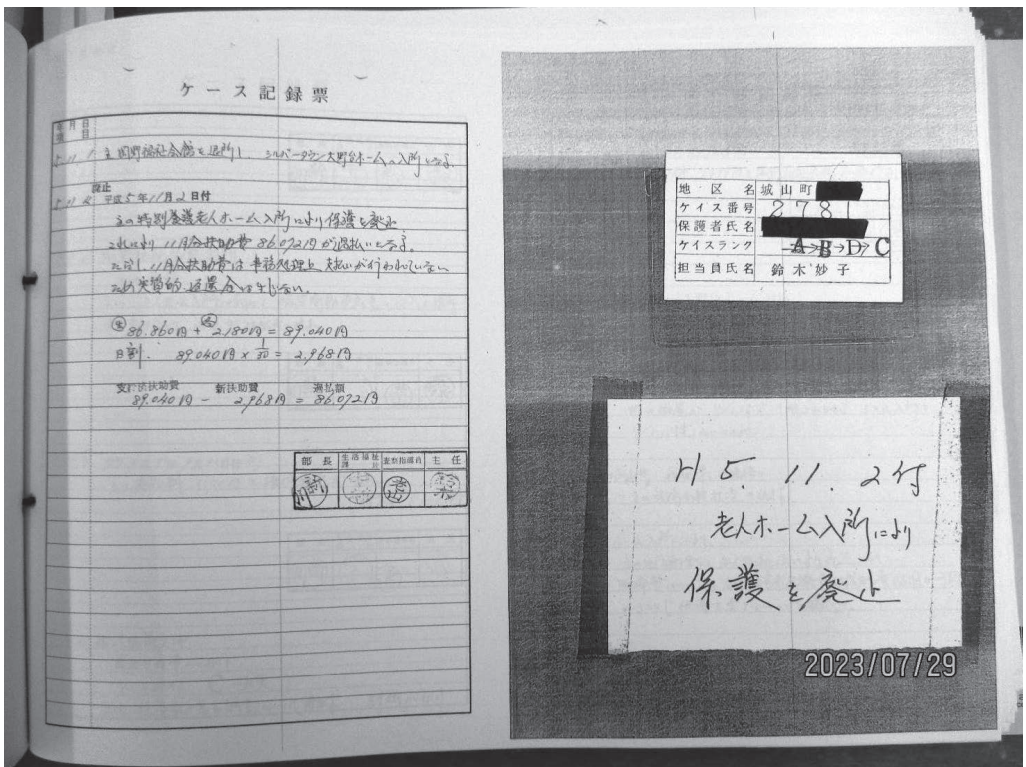 ケース記録票
年月日
項目
5.11.1 主 岡野福祉会館を退所し、シルバータウン大野台ホームへ入所となる。
廃止
5.11.2 平成5年11月2日付
主の特別養護老人ホーム入所により保護を廃止
これにより、11月分扶助費 86,072円が過払いとなる。
ただし、11月分扶助費は事務処理上、支払いが行われていない
ため実質的、返還金は生じない。
86,860円 + 2,180円 = 89,040円
日割. 89,040円 × 1/30 = 2,968円
支給済扶助費 新扶助費 過払額
89,040円 − 2,968円 = 86,072円
部長 生活福祉課長 査察指導員 主任
鈴木
地区名 城山町
ケイス番号 2781
保護者氏名
ケイスランク A→B→D→C
担当員氏名 鈴木妙子
H5.11.2付
老人ホーム入所により
保護を廃止
2023/07/29